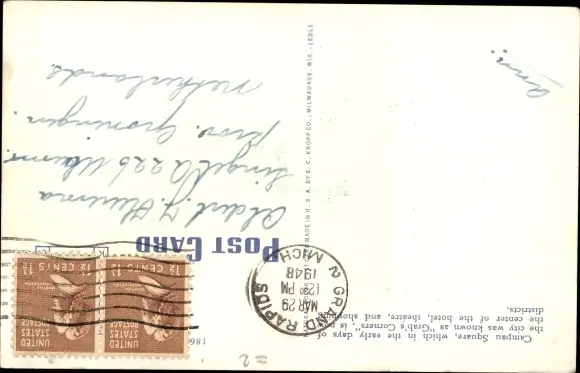 Campau Square, which in the early days of
the city was known as "Grab's Corners", is now
the center of the hotel, theatre, and shopping
districts.
POST CARD
GRAND RAPIDS
MAR 29
12 30 PM
1948
MICH.
2
UNITED
STATES
POSTAGE
1½ CENTS 1½
UNITED
STATES
POSTAGE
1½ CENTS 1½
MADE IN U.S.A. BY E. C. KROPP CO., MILWAUKEE, WIS. (EBG)
Singel A 226
Prov. Groningen.
Netherlands.
=2